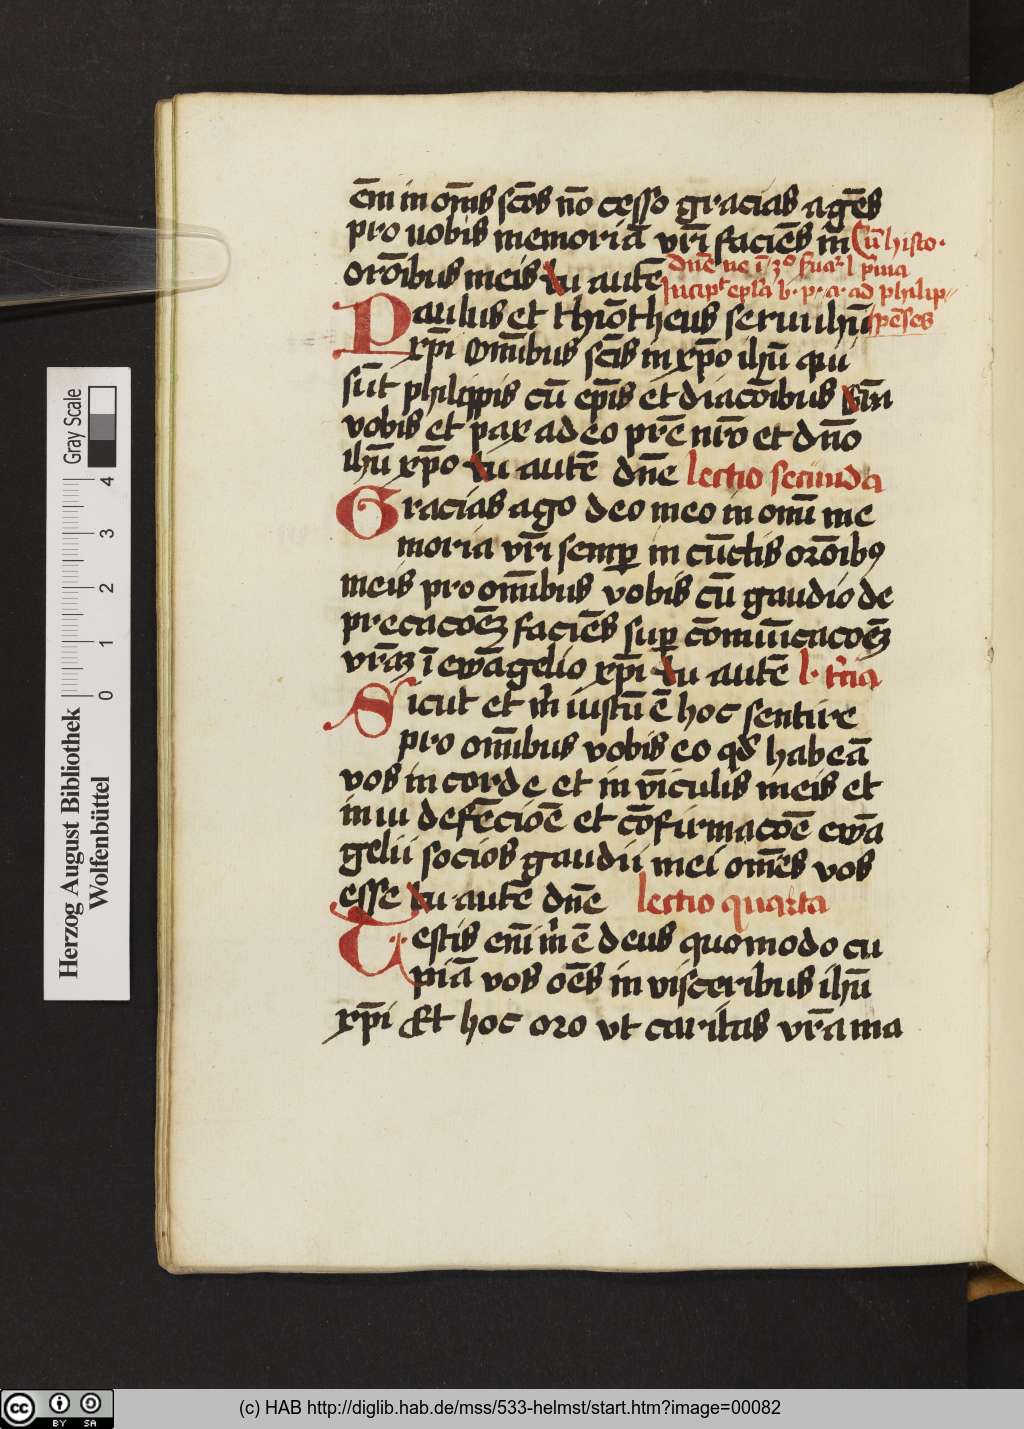 ēm in om̄s scōs nō cesso gracias agēs
pro uobis memoriā vrī faciēs in Cū histo.
orōibus meis tu autē dn̄e
Incipt epl'a b. p. a. ad philip
Paulus et thiōtheus serui ihū pēses
xp̄i Om̄ibus scīs in xp̄o ihū qui
sūt philippis cū ep̄is et diacōibus
vobis et pax a deo prē nrō et dn̄o
ihū xp̄o tu autē dn̄e lectio secunda
Gracias ago deo meo in omī me
moria vrī semp̄ in cūctis orōibꝯ
meis pro om̄ibus vobis cū gaudio de
precacōēꝫ faciēs sup̄ cōmūicacōēꝫ
vrāꝫ ī ewāgelio xp̄i tu autē l. tr̄cia
Sicut et m̄ iustū ē hoc sentire
pro om̄ibus vobis eo qd̄ habeā
vos in corde et in vīculis meis et
in defēcioē et cōfirmacōē ewā
gelii socios gaudii mei om̄es vos
esse tu autē dn̄e lectio quarta
Testis enī m̄ ē deus quomodo cu
piā vos oēs in visceribus ihū
xp̄i Et hoc oro vt caritas vrā ma
Herzog August Bibliothek
Wolfenbüttel
0 1 2 3 4
Gray Scale
cc BY SA
(c) HAB http://diglib.hab.de/mss/533-helmst/start.htm?image=00082